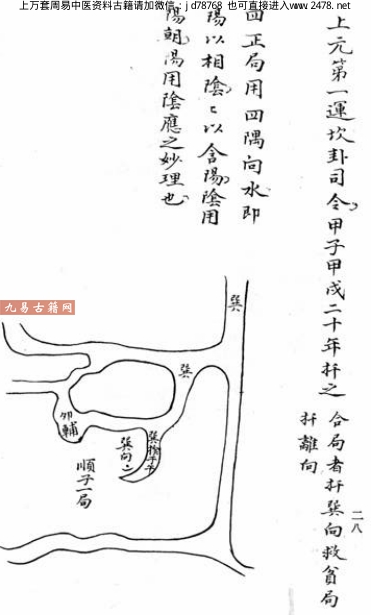 上万套周易中医资料古籍请加微信：jd78768 也可直接进入www.2478.net
上元第一運坎卦司令甲子甲戌二十年扦之
合局者扦巽向救貧局
扦離向
二八
四正局用四隅向水即
陽以相陰陰以含陽陰用
陽朝陽用陰應之妙理也
九易古籍网
巽
巽
卯輔
巽向
順子一局